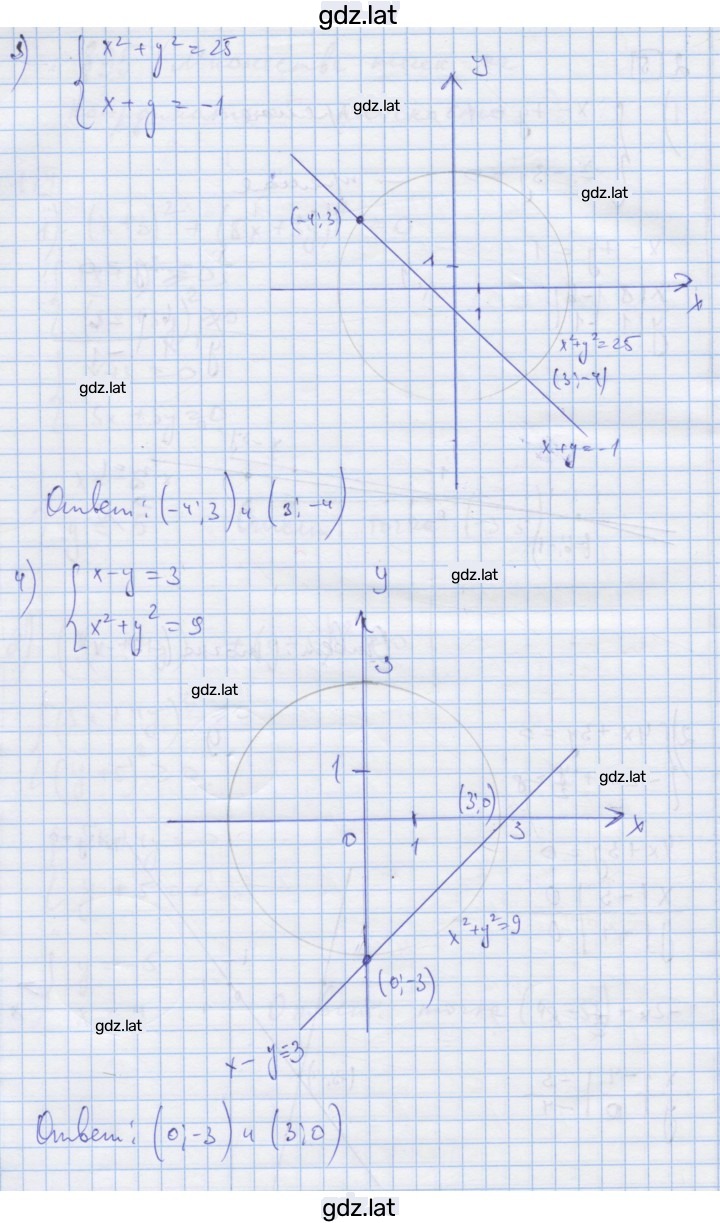 gdz.lat
3) { x² + y² = 25
x + y = -1
y
gdz.lat
gdz.lat
(-4; 3)
1
1
x
x² + y² = 25
(3; -4)
gdz.lat
x + y = -1
Ответ: (-4; 3) и (3; -4)
4) { x - y = 3
x² + y² = 9
y
gdz.lat
3
gdz.lat
1
gdz.lat
(3; 0)
0
1
3
x
x² + y² = 9
(0; -3)
gdz.lat
x - y = 3
Ответ: (0; -3) и (3; 0)
gdz.lat